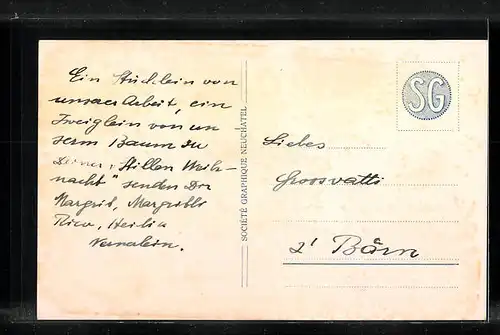 Ein Stücklein von
unserer Arbeit, ein
Zweiglein von un
serm Baum zu
Deiner "Stillen Weih-
nacht" senden Dir
Margrit, Margritli
Rico,
SOCIÉTÉ GRAPHIQUE NEUCHATEL
SG
Liebes
Groosvatti
z' Bärn